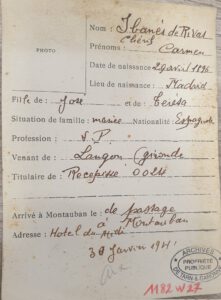 Nom : Ibanès de Rivas
chérif
PHOTO
Prénoms : Carmen
Date de naissance 29 avril 1895
Lieu de naissance Madrid
Fille de : José et de : Teresa
Situation de famille : mariée Nationalité : Espagnole
Profession : S. P.
Venant de : Langon Gironde
Titulaire de : Récépissé
Arrivé à Montauban le : de passage
à Montauban
Adresse : Hotel du Midi
30 Janvier 1941
ARCHIVES
PROPRIÉTÉ
PUBLIQUE
TARN & GARONNE
1182 W 27